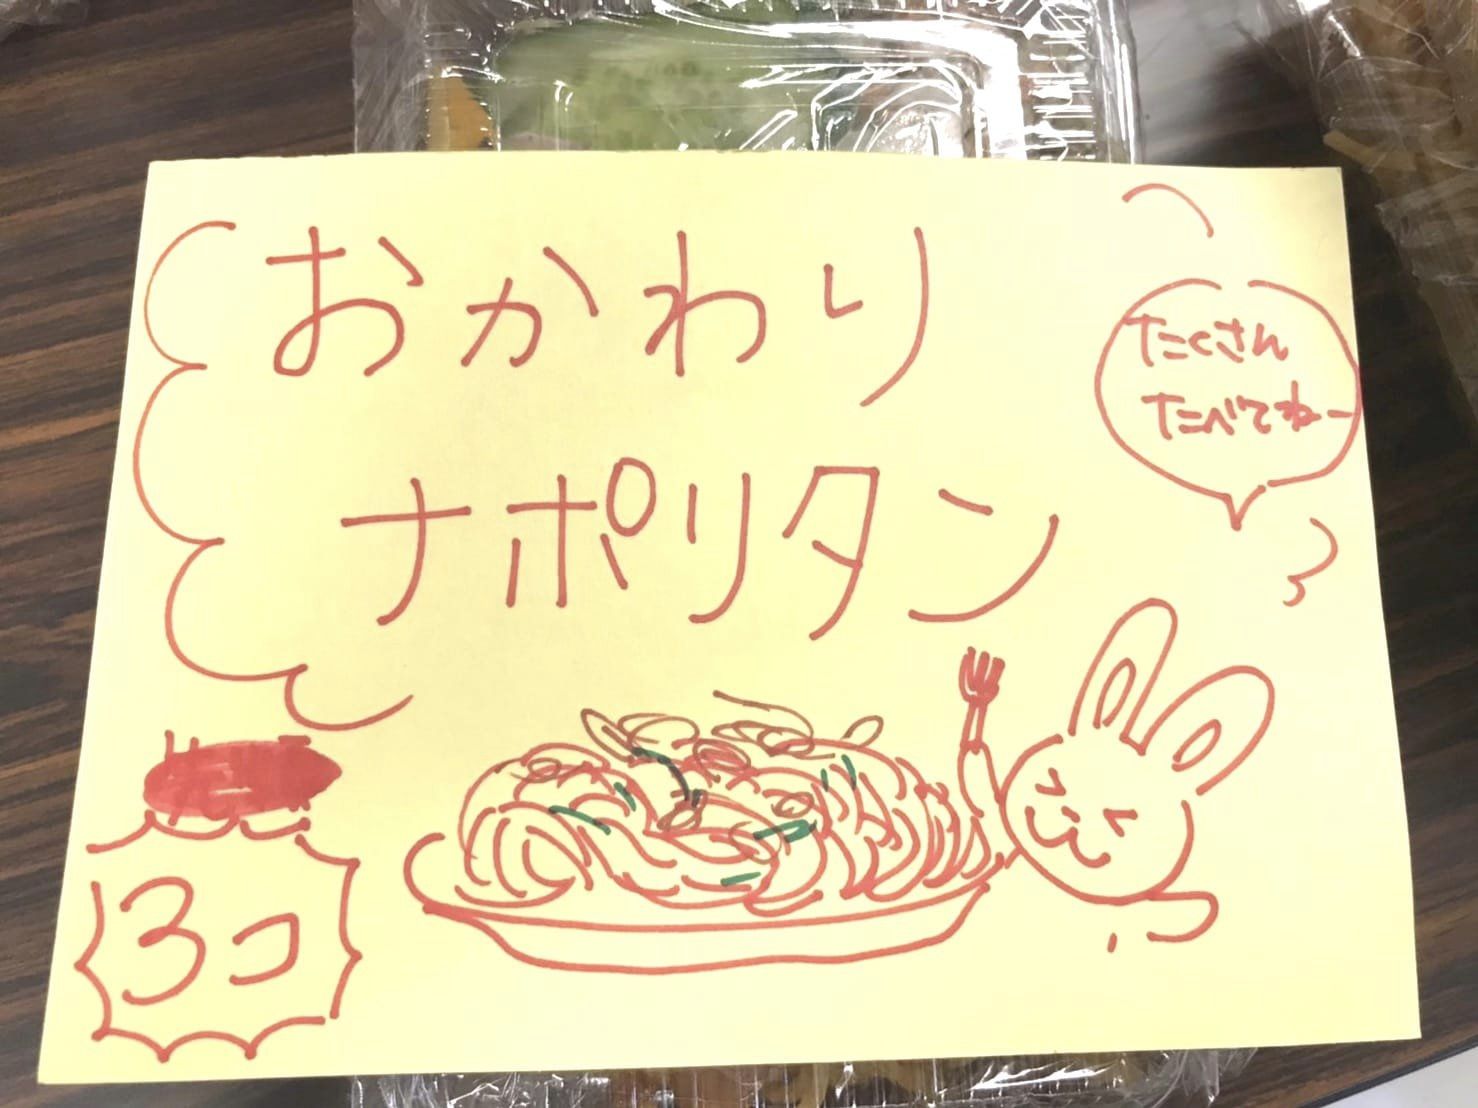 おかわり
ナポリタン
たくさん
たべてねー
3コ